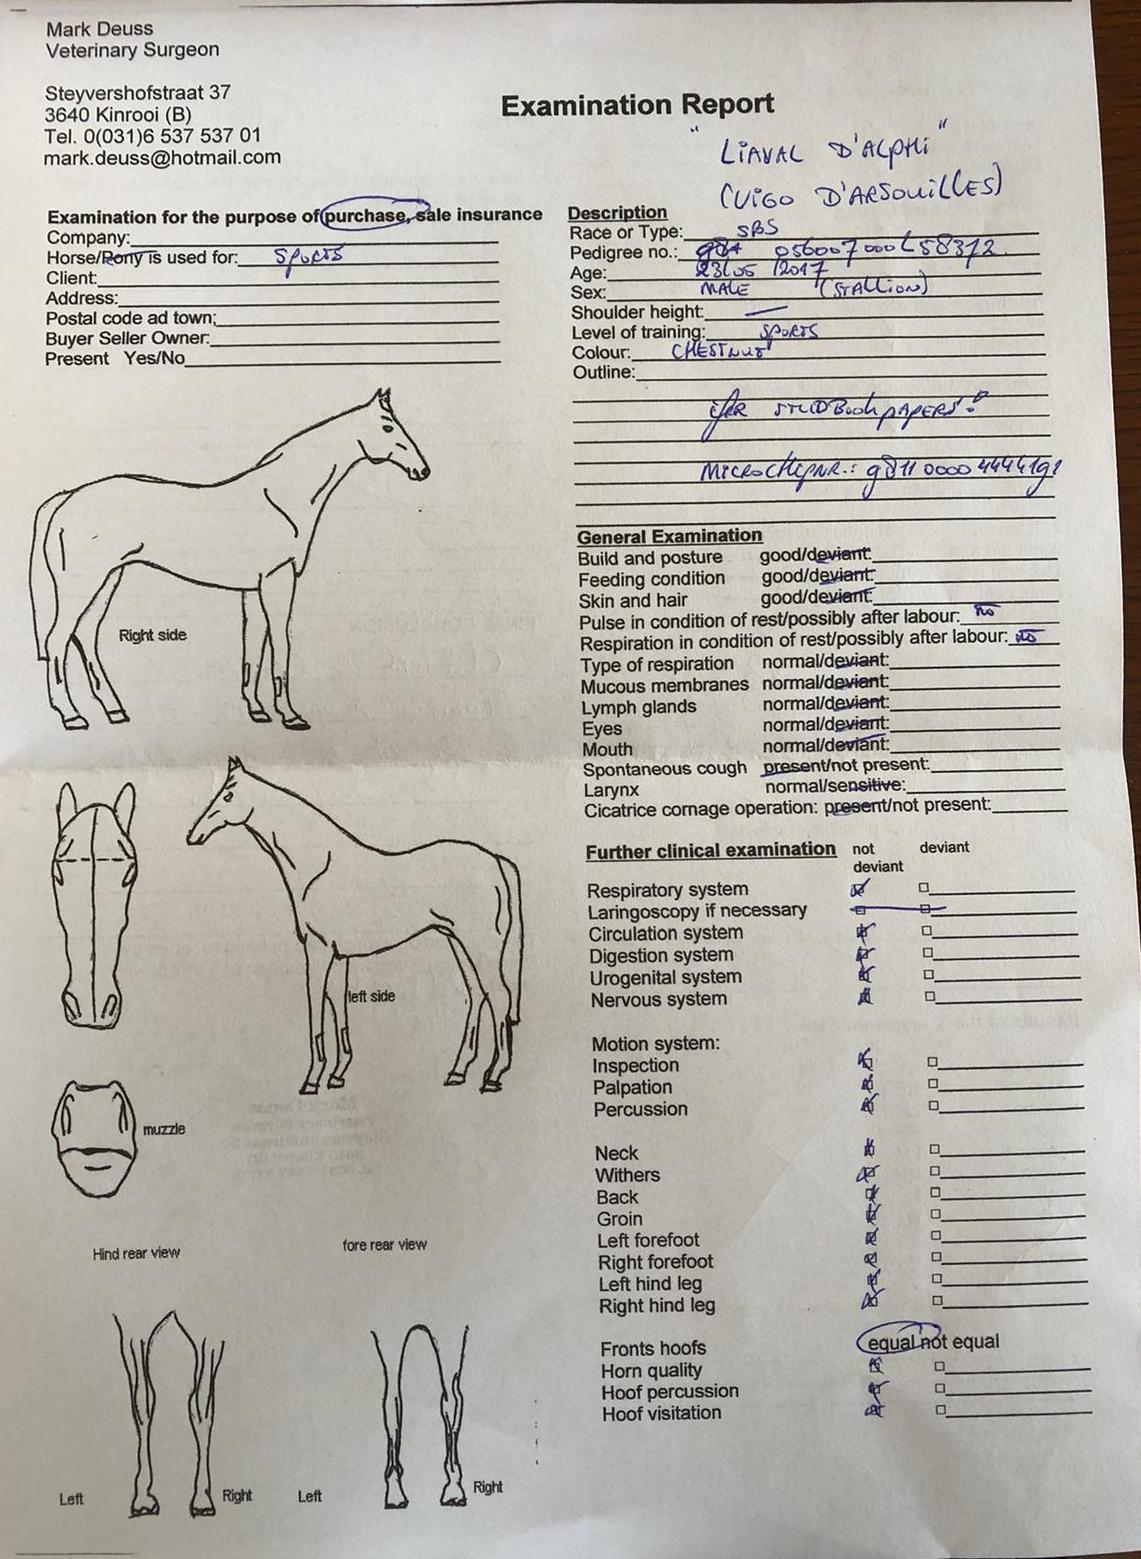 Mark Deuss
Veterinary Surgeon
Steyvershofstraat 37
3640 Kinrooi (B)
Tel. 0(031)6 537 537 01
mark.deuss@hotmail.com
Examination Report
" LiAVAL D'ALPHi "
(ViGO D'ARSOUiLLES)
Examination for the purpose of purchase, sale insurance
Company:
Horse/Pony is used for: SPORTS
Client:
Address:
Postal code ad town;
Buyer Seller Owner:
Present Yes/No
Description
Race or Type: SBS
Pedigree no.: 056007000L58372
Age: 23/05/2017
Sex: MALE (STALLION)
Shoulder height: —
Level of training: SPORTS
Colour: CHESTNUT
Outline:
STUDBook PAPERS!
MICROCHIPNR.:
Right side
General Examination
Build and posture good/deviant:
Feeding condition good/deviant:
Skin and hair good/deviant:
Pulse in condition of rest/possibly after labour:
Respiration in condition of rest/possibly after labour:
Type of respiration normal/deviant:
Mucous membranes normal/deviant:
Lymph glands normal/deviant:
Eyes normal/deviant:
Mouth normal/deviant:
Spontaneous cough present/not present:
Larynx normal/sensitive:
Cicatrice cornage operation: present/not present:
left side
muzzle
Further clinical examination not deviant deviant
Respiratory system
Laringoscopy if necessary
Circulation system
Digestion system
Urogenital system
Nervous system
Motion system:
Inspection
Palpation
Percussion
Neck
Withers
Back
Groin
Left forefoot
Right forefoot
Left hind leg
Right hind leg
Fronts hoofs equal not equal
Horn quality
Hoof percussion
Hoof visitation
Hind rear view
fore rear view
Left Right Left Right